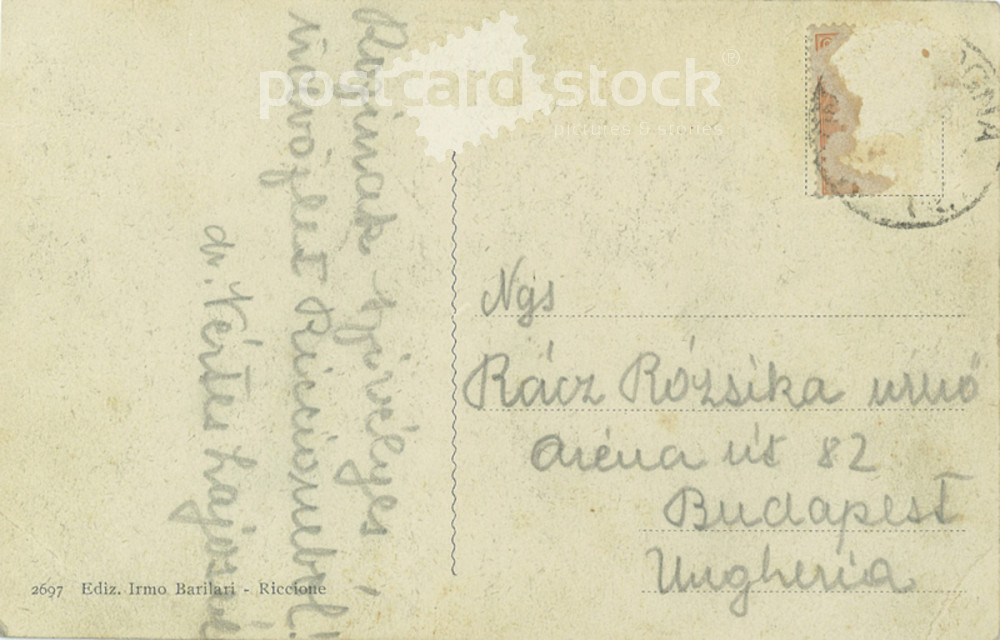 Rózsinak szivélyes
üdvözlet Riccioneból!
dr. Vértes Lajosné
postcard stock®
pictures & stories
OGNA
Ngs
Rácz Rózsika urnő
Aréna út 82
Budapest
Ungheria
2697 Ediz. Irmo Barilari - Riccione